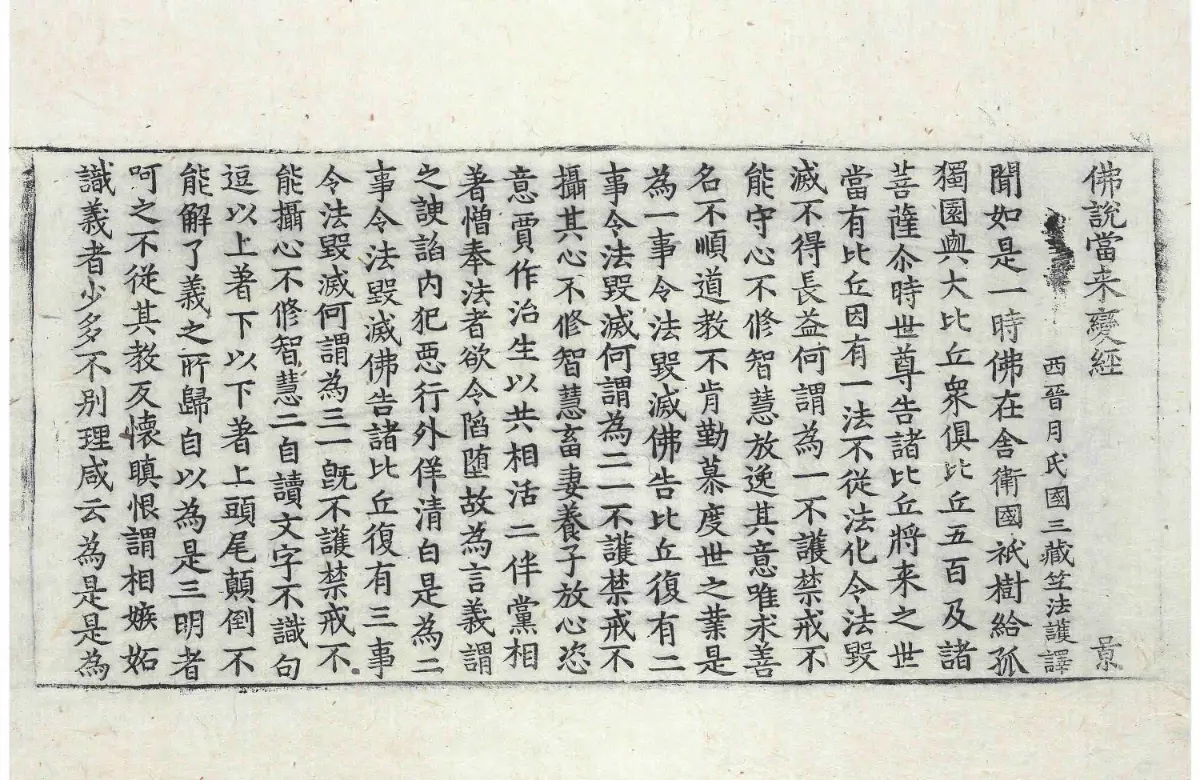 佛說當来變經
景
西晉月氏國三藏竺法護譯
聞如是一時佛在舍衛國祇樹給孤
獨園與大比丘衆俱比丘五百及諸
菩薩尒時世尊告諸比丘將来之世
當有比丘因有一法不從法化令法毀
滅不得長益何謂為一不護禁戒不
能守心不修智慧放逸其意唯求善
名不順道教不肯勤慕度世之業是
為一事令法毀滅佛告比丘復有二
事令法毀滅何謂為二一不護禁戒不
攝其心不修智慧畜妻養子放心恣
意賈作治生以共相活二伴黨相
著憎奉法者欲令陷墮故為言義謂
之諛諂内犯惡行外佯清白是為二
事令法毀滅佛告諸比丘復有三事
令法毀滅何謂為三一旣不護禁戒不
能攝心不修智慧二自讀文字不識句
逗以上著下以下著上頭尾顛倒不
能解了義之所歸自以為是三明者
呵之不從其教反懷瞋恨謂相嫉妬
識義者少多不別理咸云為是是為